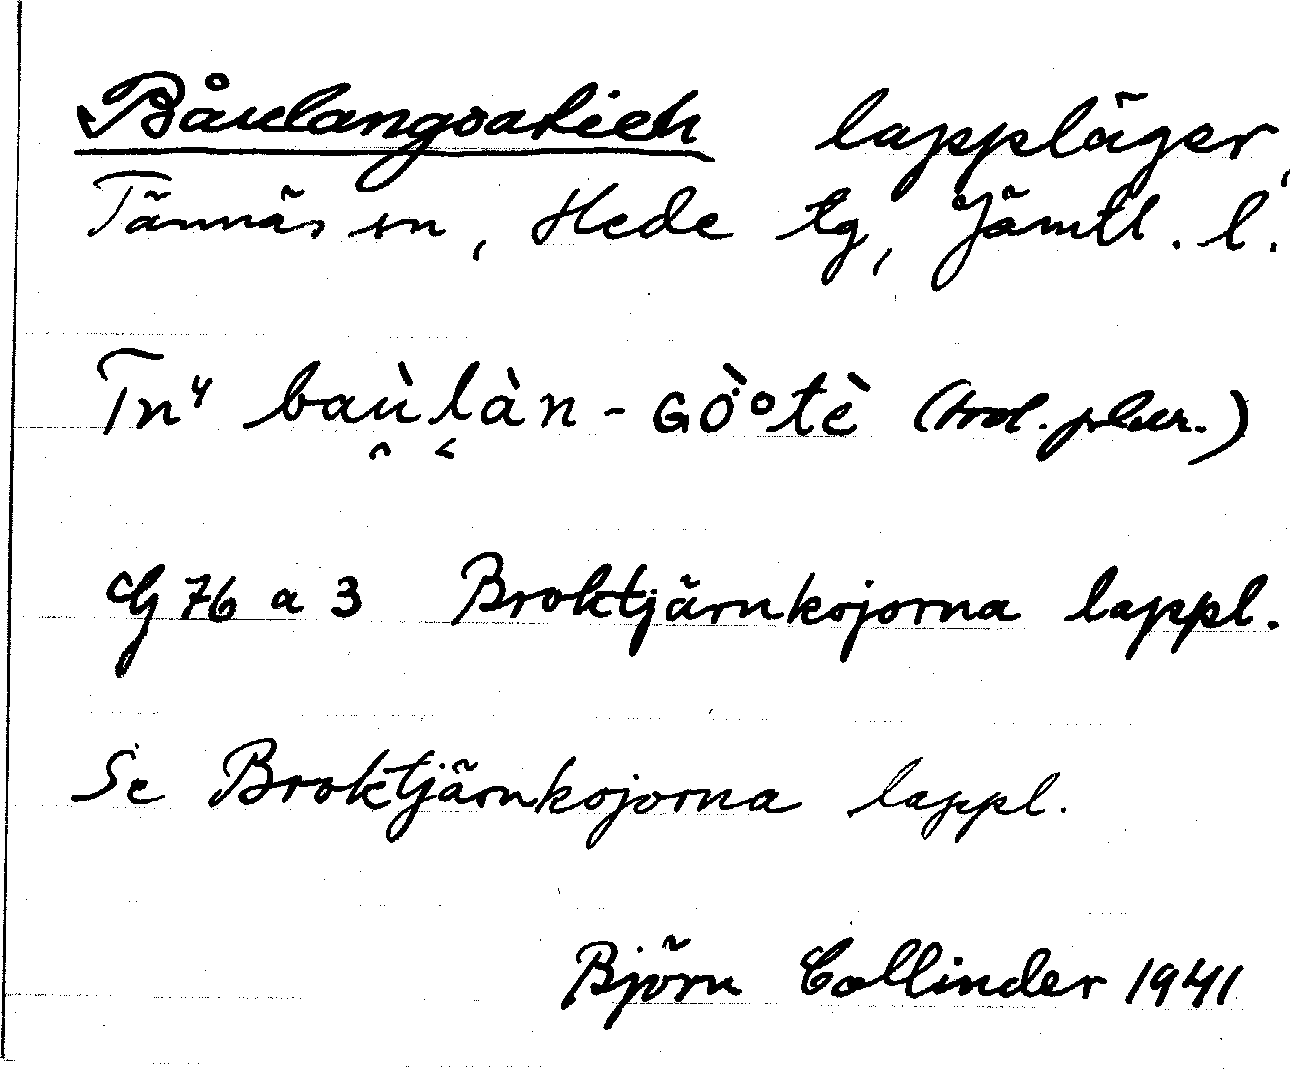 Båulangoatieh lappläger,
Tännäs sn, Hede tg, Jämtl. l.
Tn⁴ baù̯l̬àn-Gò̀°tè (nol. plur.)
G 76 a 3 Broktjärnkojorna lappl.
Se Broktjärnkojorna lappl.
Björn Collinder 1941